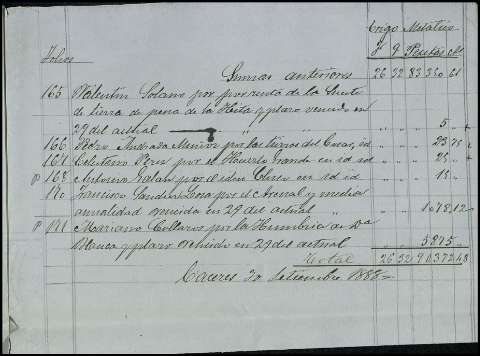 Trigo Metálico
Folios F Q Pesetas Cs
Sumas anteriores 26 32 83330 61
165 Valentin Solano por por renta de la Suerte
de tierra de pena de la Hita y plazo vencido en
29 del actual " " 5 "
166 Pedro Andrada Muñoz por las tierras del Casar, id " " 23 75
167 Celestino Perez por el Huerto Grande en id id " " 25 "
P 168 Antonio Galan por el idem Chico en id id " " 15 "
170 Francisco por el Arenal y media
annalidad vencida en 29 del actual " " 1078 12
P 171 Mariano Collazos por la Humbria de Dª
Blanca y plazo vencido en 29 del actual 5875 "
Total 26 32 90372 48
Caceres 30 Setiembre 1888